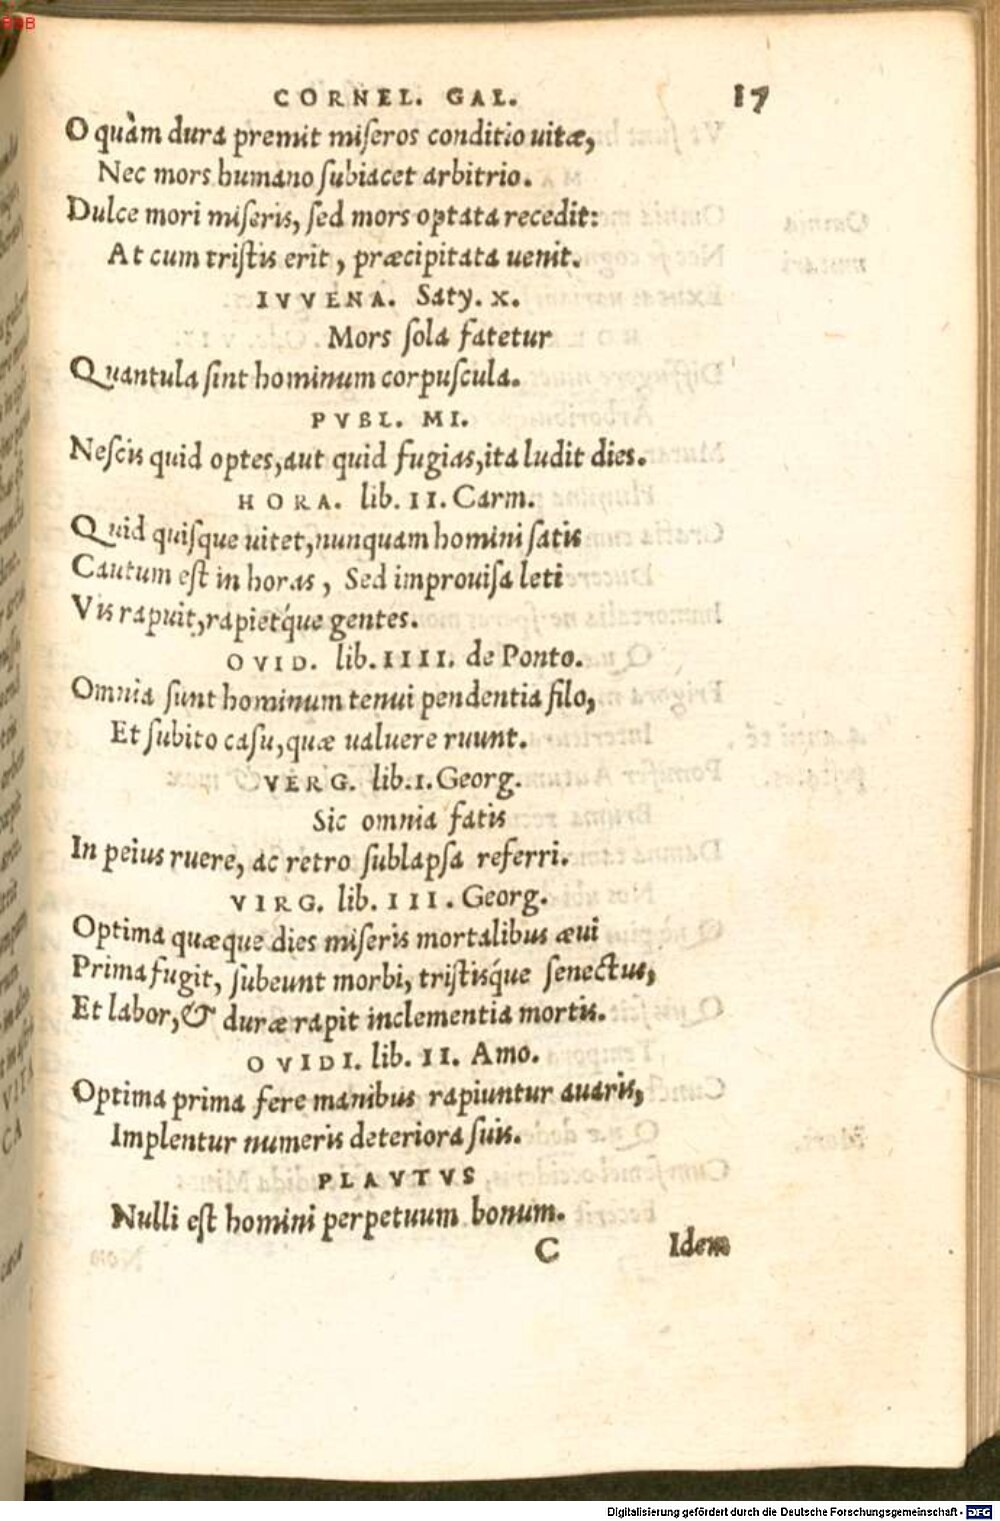 BSB
CORNEL. GAL. 17
O quàm dura premit miseros conditio uitæ,
Nec mors humano subiacet arbitrio.
Dulce mori miseris, sed mors optata recedit:
At cum tristis erit, præcipitata uenit.
IVVENA. Saty. X.
Mors sola fatetur
Quantula sint hominum corpuscula.
PVBL. MI.
Nescis quid optes, aut quid fugias, ita ludit dies.
HORA. lib. II. Carm.
Quid quisque uitet, nunquam homini satis
Cautum est in horas, Sed improuisa leti
Vis rapuit, rapietq́ue gentes.
OVID. lib. IIII. de Ponto.
Omnia sunt hominum tenui pendentia filo,
Et subito casu, quæ ualuere ruunt.
VERG. lib. I. Georg.
Sic omnia fatis
In peius ruere, ac retro sublapsa referri.
VIRG. lib. III. Georg.
Optima quæque dies miseris mortalibus æui
Prima fugit, subeunt morbi, tristisq́ue senectus,
Et labor, & duræ rapit inclementia mortis.
OVIDI. lib. II. Amo.
Optima prima fere manibus rapiuntur auaris,
Implentur numeris deteriora suis.
PLAVTVS
Nulli est homini perpetuum bonum.
C Idem
Digitalisierung gefördert durch die Deutsche Forschungsgemeinschaft - DFG